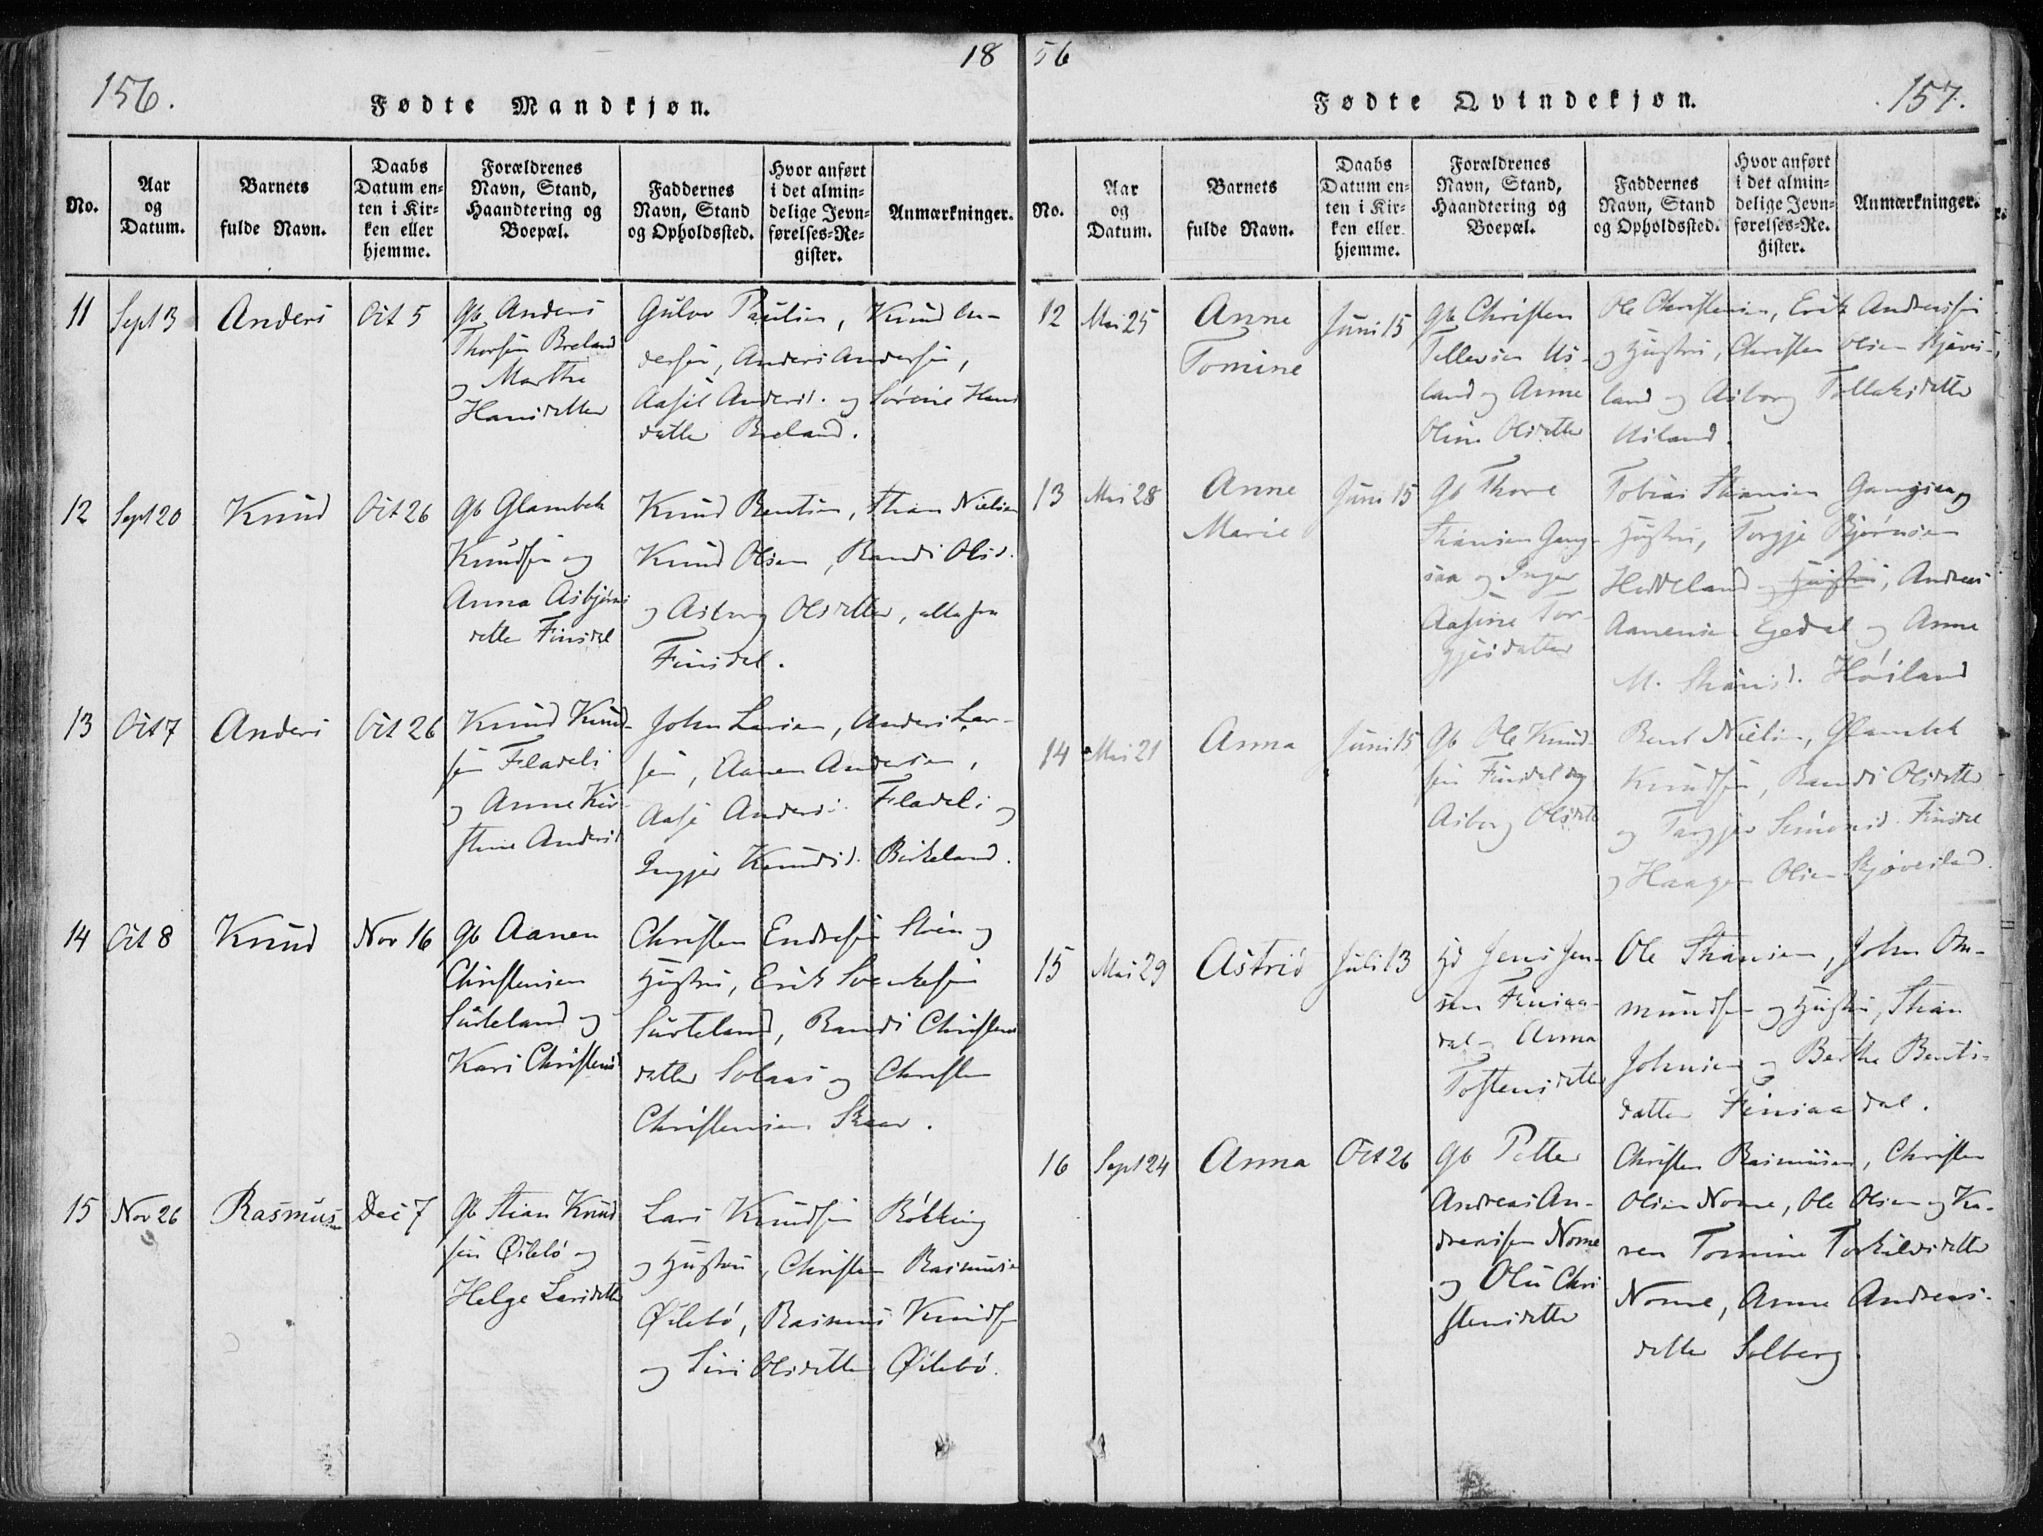 18 56
156.
Fødte Mandkjøn.
No.
Aar
og
Datum.
Barnets
fulde Navn.
Daabs
Datum en-
ten i Kir-
ken eller
hjemme.
Forældrenes
Navn, Stand,
Haandtering og
Boepæl.
Faddernes
Navn, Stand
og Opholdssted.
Hvor anført
i det almin-
delige Jevn-
førelses-Re-
gister.
Anmærkninger.
11 Sept 3 Anders Oct 5
Gb Anders
Thorsen Breland
og Marthe
Hansdatter
Gulov Paulsen, Knud An-
dersen, Anders Andersen,
Aasil Andersd. og Sørine Hans
datter Breland.
12 Sept 20 Knud Oct 26
Gb Glambek
Knudsen og
Anna Asbjørns
datter Finsdal
Knud Bentsen, Stian Nielsen
Knud Olsen, Randi Olsd.
og Asborg Olsdatter, alle fra
Finsdal.
13 Oct 7 Anders Oct 26
Knud Knud-
sen Fladeli
og Anne Kir-
stine Andersd
John Larsen, Anders Lar-
sen, Aanen Andersen,
Aase Andersd. Fladeli og
Ingjer Knudsd. Birkeland.
14 Oct 8 Knud Nov 16
Gb Aanen
Christensen
Surteland og
Kari Christensd
Christen Endresen Stien og
Hustru, Erik Svenkesen
Surteland, Randi Christens
datter Solaas og Christen
Christensen Skaar.
15 Nov 26 Rasmus Dec 7
Gb Stian Knud
sen Øilebø og
Helge Larsdatter
Lars Knudsen Røkking
og Hustru, Christen Rasmussen
Øilebø, Rasmus Knudsen
og Siri Olsdatter Øilebø.
157.
Fødte Qvindekjøn.
No.
Aar
og
Datum.
Barnets
fulde Navn.
Daabs
Datum en-
ten i Kir-
ken eller
hjemme.
Forældrenes
Navn, Stand,
Haandtering og
Boepæl.
Faddernes
Navn, Stand
og Opholdssted.
Hvor anført
i det almin-
delige Jevn-
førelses-Re-
gister.
Anmærkninger.
12 Mai 25 Anne
Tomine
Juni 15
Gb Christen
Tellevsen Us-
land og Anne
Oline Olsdatter
Ole Christensen, Erik Andreassen
og Hustru, Christen Olsen Skjøves-
land og Asborg Tellevsdatter
Usland.
13 Mai 28 Anne
Marie
Juni 15
Gb Thore
Stiansen Gang-
saa og Inger
Aasine Tor-
gjesdatter
Tobias Stiansen Gangsaa og
Hustru, Torgje Bjørnsen
Heddeland og Hustru, Andreas
Aanensen Egedal og Anne
M. Stiansd. Høiland
14 Mai 21 Anna Juni 15
Gb Ole Knud-
sen Finsdal og
Asborg Olsdatter
Bent Nielsen, Glambek
Knudsen, Randi Olsdatter
og Torgjer Simonsd. Finsdal
og Haagen Olsen Skjøvesland.
15 Mai 29 Astrid Juli 13
Hd Jens Jen-
sen Finsaa-
dal og Anna
Tostensdatter
Ole Stiansen, John Om-
mundsen og Hustru, Stian
Johnsen og Berthe Bents-
datter Finsaadal.
16 Sept 24 Anna Oct 26
Gb Petter
Andreas An-
dreassen Nome
og Olu Chri
stensdatter
Christen Rasmussen, Christen
Olsen Nome, Ole Olsen og Ka-
ren Tomine Torkildsdatter
Nome, Anne Andreas-
datter Solberg.